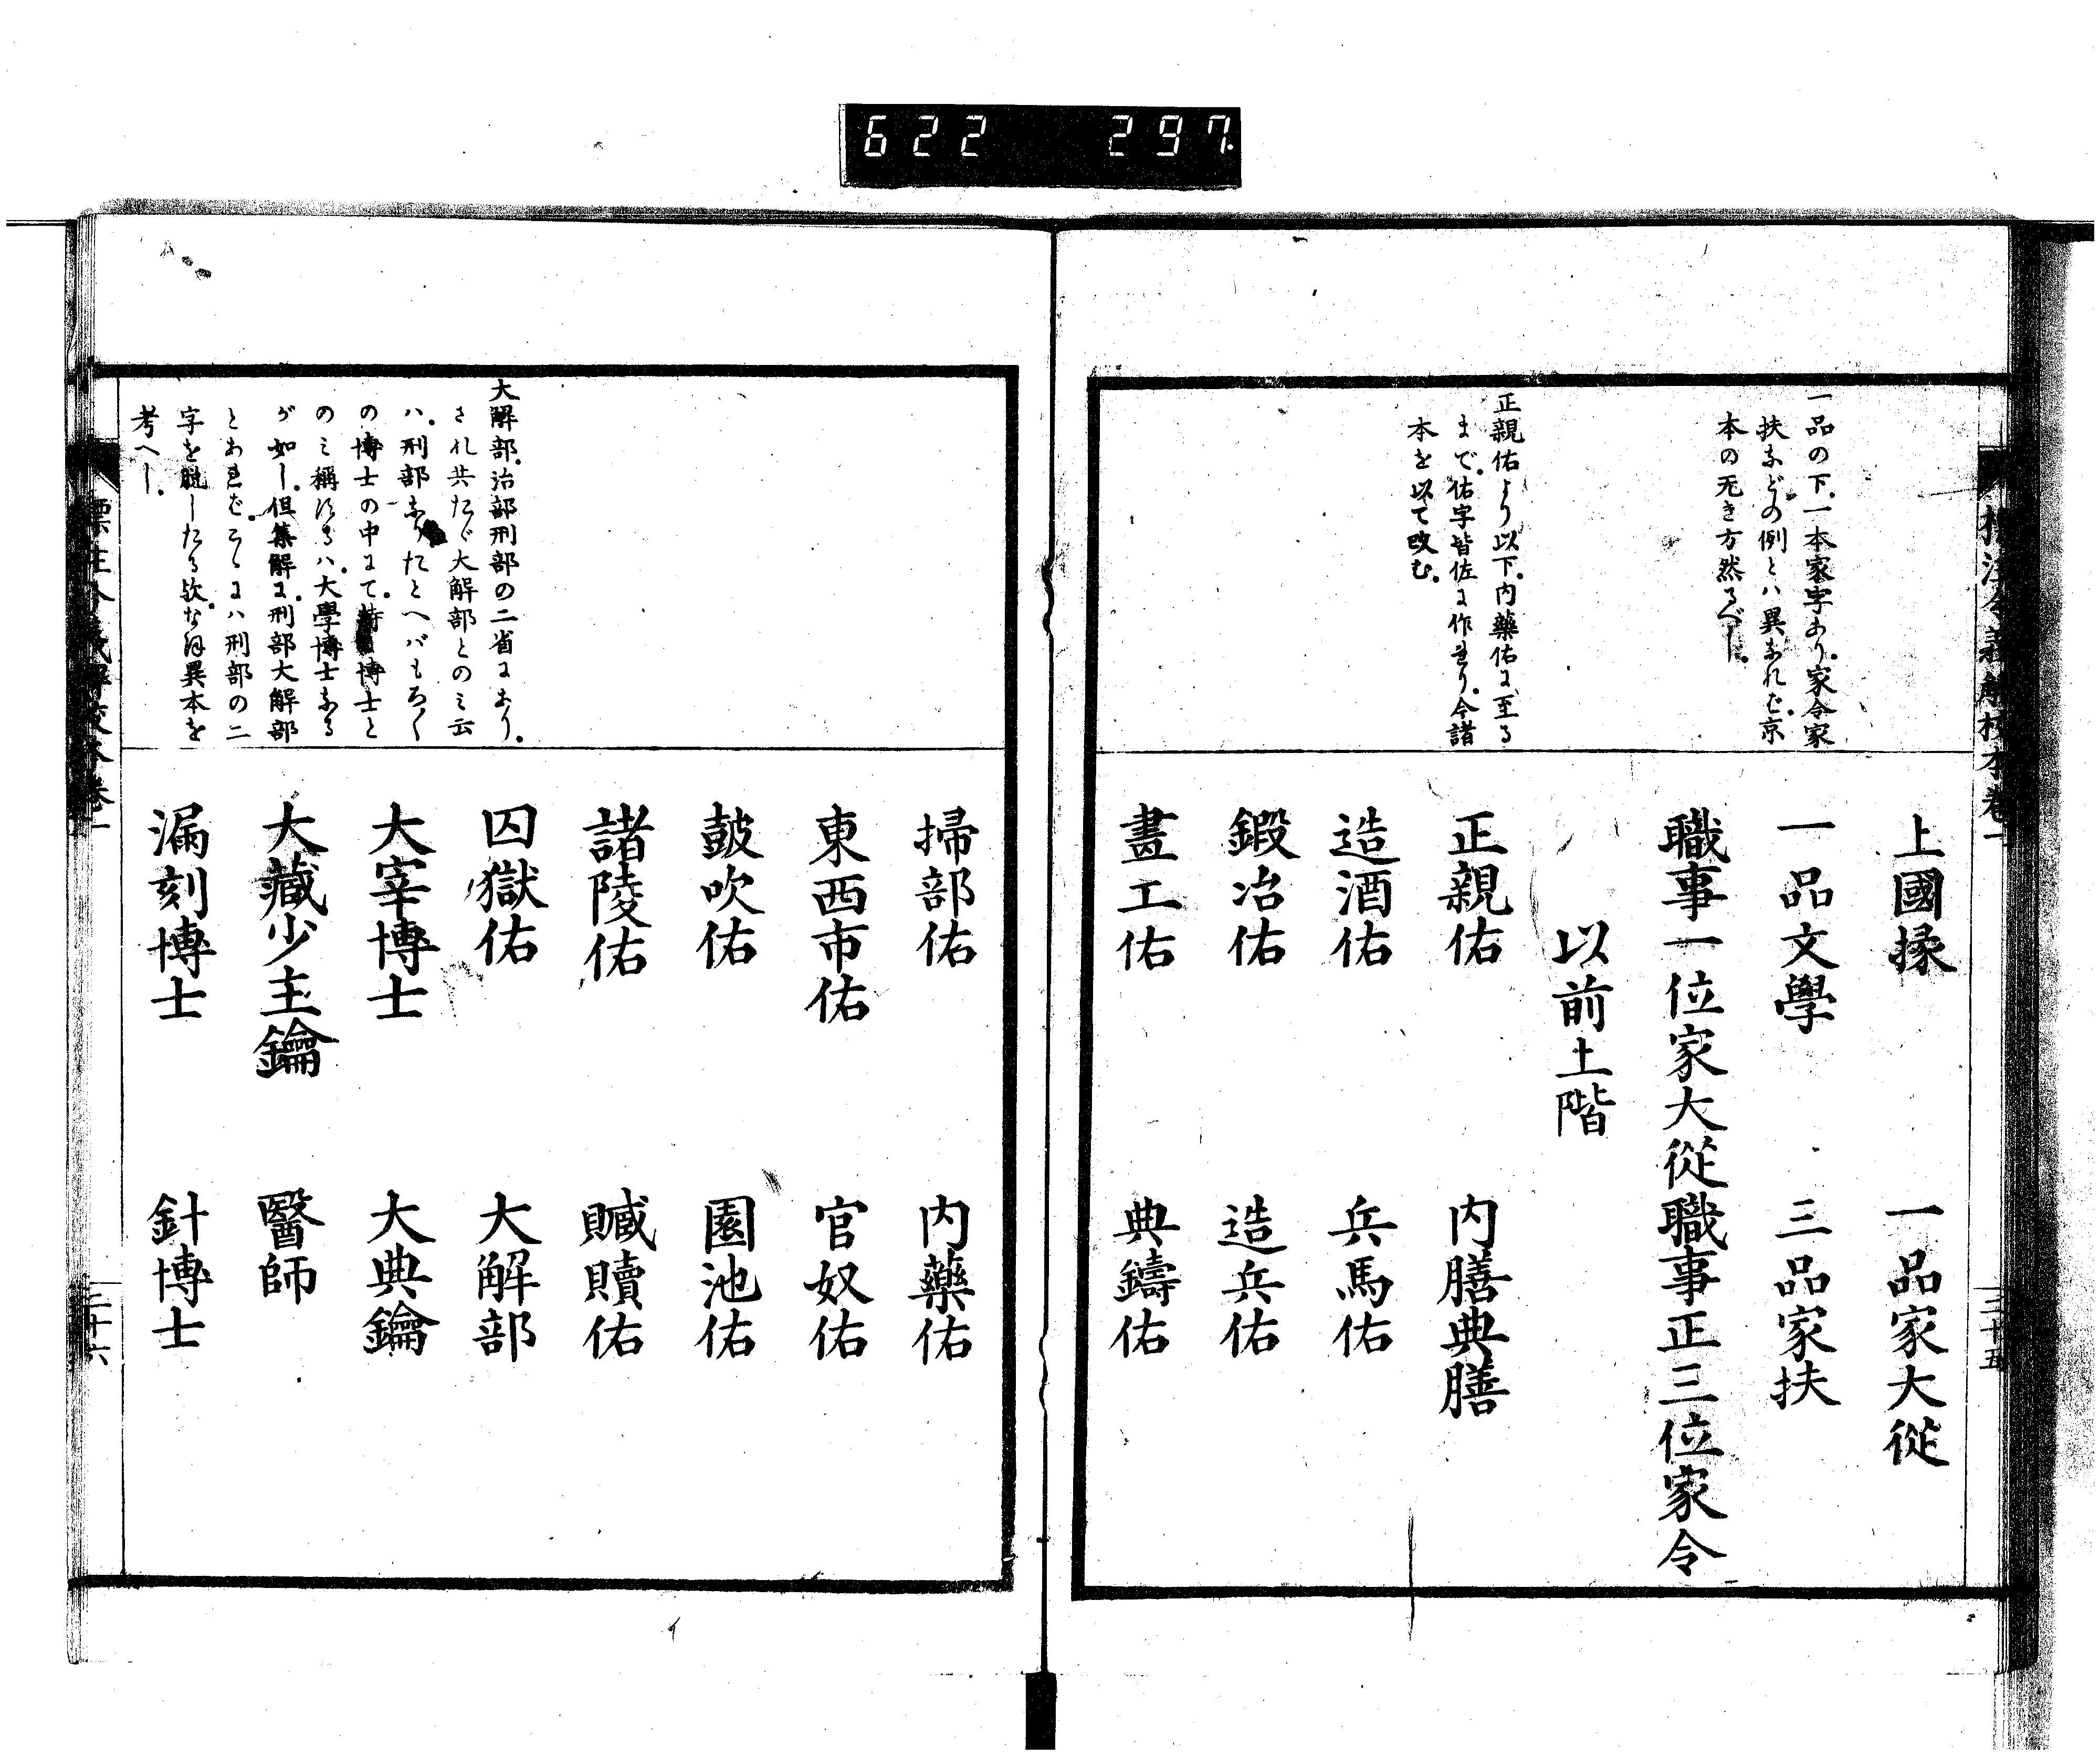 622 297
標注令義解校本卷一
三十五
一品の下。一本家字あり。家令家
扶などの例とハ異なれど。京
本の无き方然るべし。
正親佑より以下。内藥佑に至る
まで。佑字皆佐に作れり。今諸
本を以て改む。
上國掾 一品家大從
一品文學 三品家扶
職事一位家大從職事正三位家令
以前上階
正親佑 内膳典膳
造酒佑 兵馬佑
鍛冶佑 造兵佑
畫工佑 典鑄佑
大解部。治部刑部の二省にあり。
され共たゞ大解部とのミ云
ハ。刑部なりたとへバもろ〱
の博士の中にて。博士と
のミ稱するハ。大學博士なる
が如し。但集解に。刑部大解部
とあれど。こゝにハ刑部の二
字を脱したる歟。なほ異本を
考へし。
掃部佑 内藥佑
東西市佑 官奴佑
鼓吹佑 園池佑
諸陵佑 贓贖佑
囚獄佑 大解部
大宰博士 大典鑰
大藏少主鑰 醫師
漏刻博士 針博士
標注令義解校本卷一
三十六